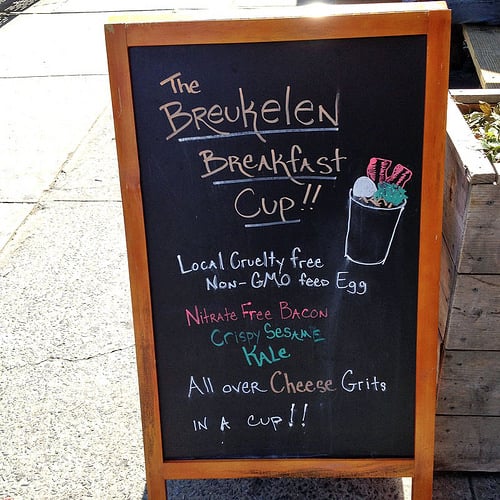 The
Breukelen
Breakfast
Cup!!
Local Cruelty free
Non-GMO feed Egg
Nitrate Free Bacon
Crispy Sesame
Kale
All over Cheese Grits
in a cup!!